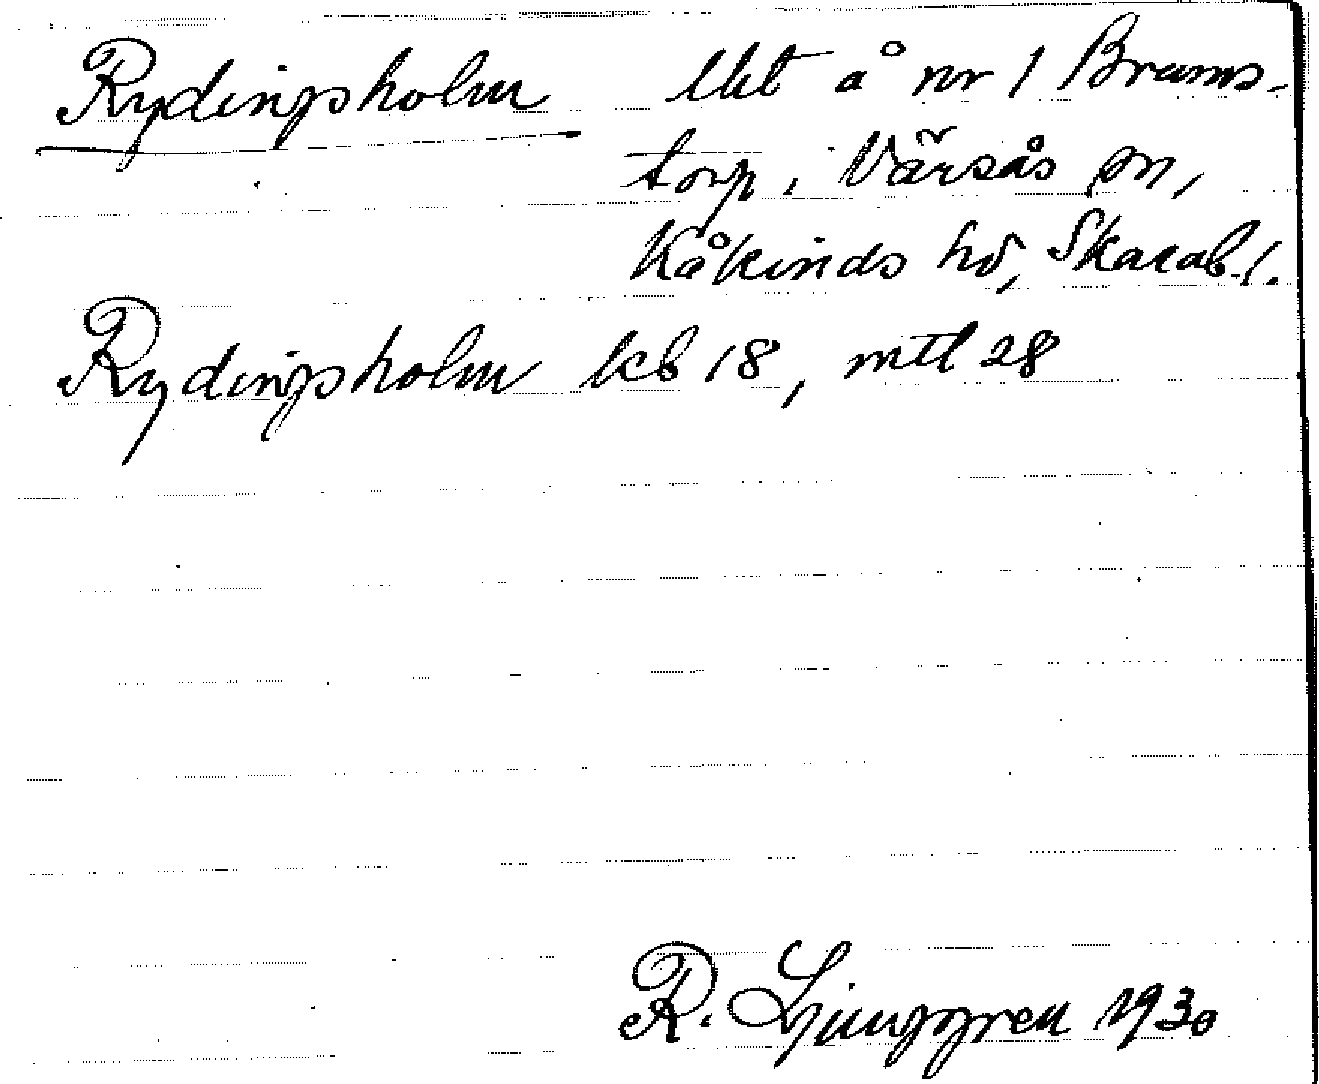 Rydingsholm Utt å nr 1 Brums-
torp, Värsås sn,
Kåkinds hd, Skarab. l.
Rydingsholm kb 18, mtl 28
R. Ljunggren 1930